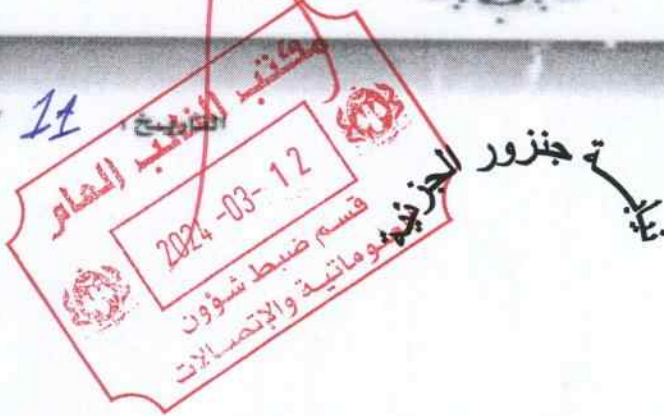 التاريخ : 11
مكتب النائب العام
2024-03-12
قسم ضبط شؤون
المعلوماتية والإتصالات
نيابة جنزور الجزئية